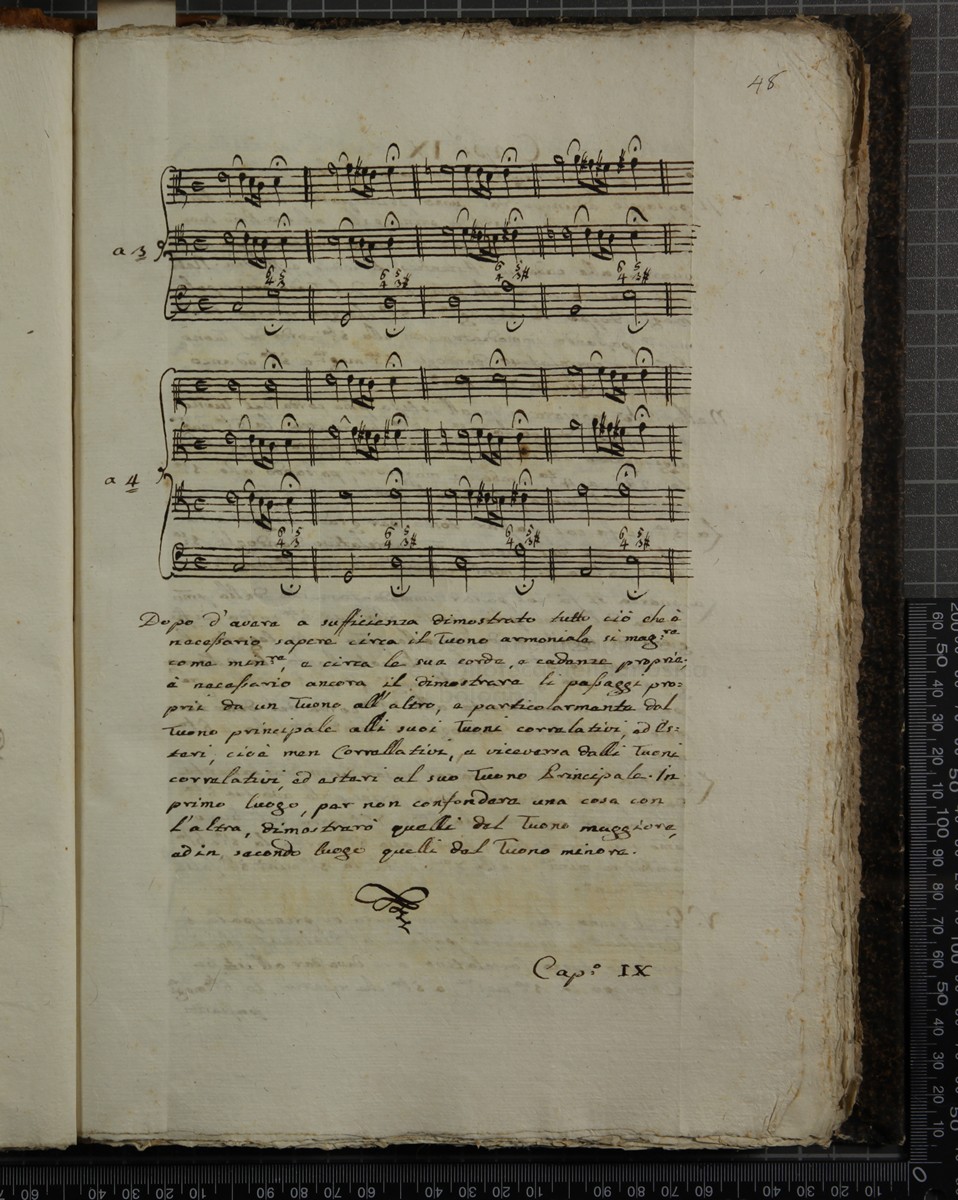 48
a 3
6 5
4 3
6 5
4 3#
6 5
4 3#
6 5
4 3#
a 4
6 5
4 3
6 5
4 3#
6 5
4 3#
6 5
4 3#
Dopo d'avere a sufficienza dimostrato tutto ciò che è
necessario sapere circa il Tuono armoniale si mag:re
come min:re, e circa le sue corde, e cadenze proprie;
è necessario ancora il dimostrare li passaggi pro:
prii da un Tuono all'altro, e particolarmente dal
Tuono principale alli suoi Tuoni correlativi, ed Es:
teri, cioè men Correllativi, e viceversa dalli Tuoni
correlativi, ed esteri al suo Tuono Principale. In
primo luogo, per non confondere una cosa con
l'altra, dimostrarò quelli del Tuono maggiore,
ed in secondo luogo quelli del Tuono minore.
Cap:o IX